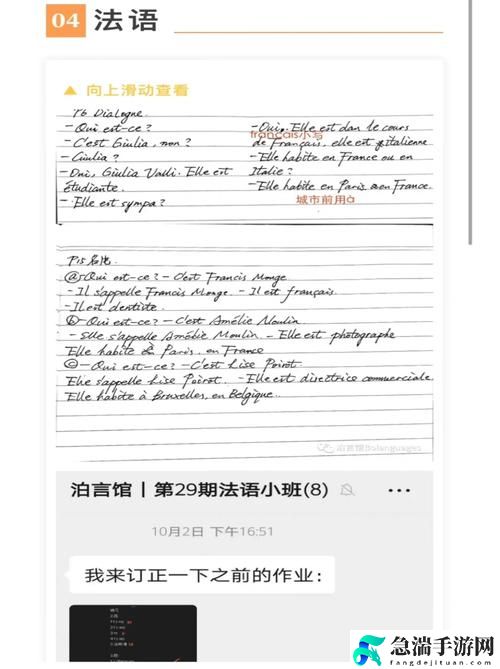 04 法语
向上滑动查看
P6 Dialogne.
- Qui est-ce?
- C'est Giulia, non?
- Giulia?
- Oui, Giulia Valli. Elle est
étudiante.
- Elle est sympa?
- Oui. Elle est dan le cours
français小写
de Français, elle est italienne
- Elle habite en France ou en
Italie?
- Elle habite en Paris en France.
城市前用à
P15
ⓐ - Qui est-ce? - C'est Francis Monge
- Il s'appelle Francis Monge. - Il est français.
- Il est dentiste.
ⓑ - Qui est-ce? - C'est Amélie Moulin
- Elle s'appelle Amélie Moulin. - Elle est photographe
Elle habite à Paris, en France
ⓒ - Qui est-ce? - C'est Lise Poirot.
Elle s'appelle Lise Poirot. - Elle est directrice commerciale
Elle habite à Bruxelles, en Belgique.
泊言馆Bolanguages
泊言馆 | 第29期法语小班(8)
10月2日 下午16:51
我来订正一下之前的作业:
急湍手游网
fangdejituan.com